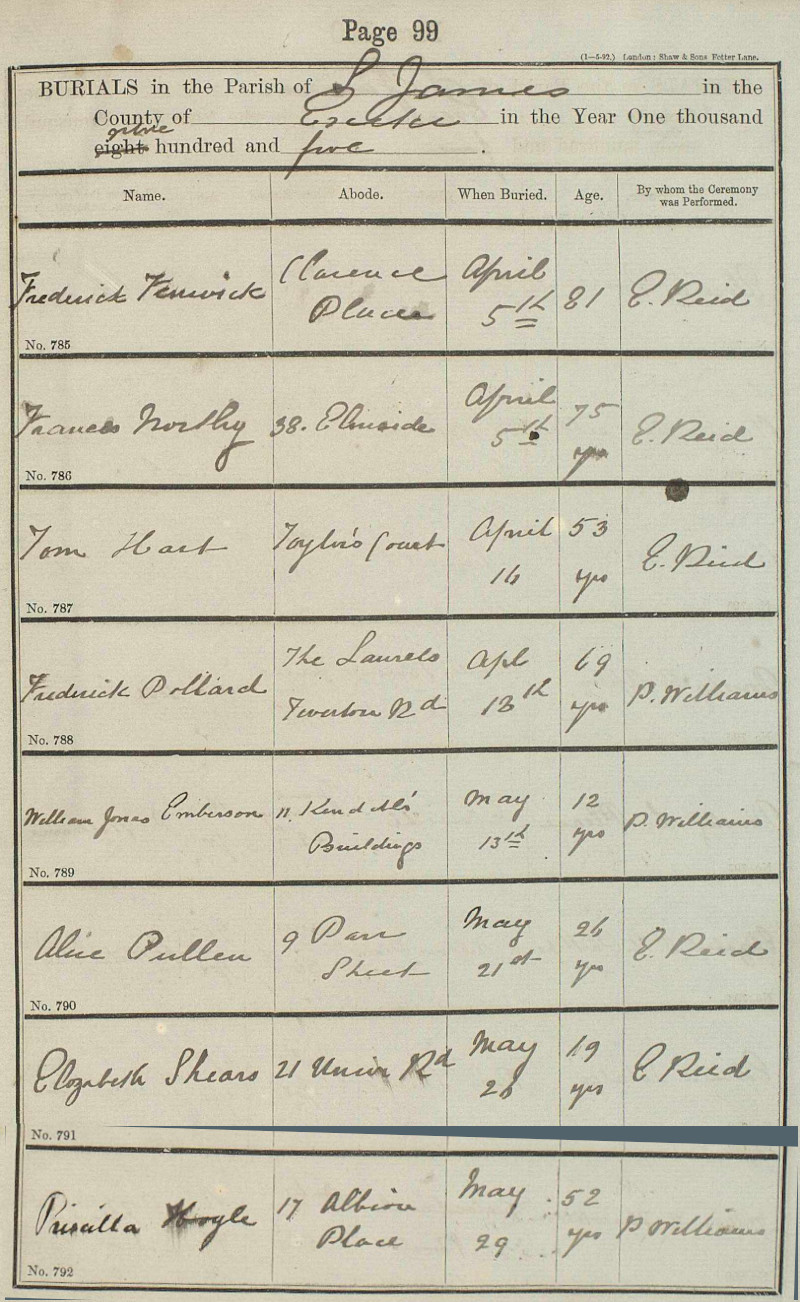 Page 99
(1—5-92.) London: Shaw & Sons Fetter Lane.
BURIALS in the Parish of S James in the
County of Exeter in the Year One thousand
nine
eight hundred and five.
Name. Abode. When Buried. Age. By whom the Ceremony
was Performed.
Frederick Fenwick Clarence Place April 5th 81 E. Reid
No. 785
Frances Northy 38. Elmside April 5th 75 yrs E. Reid
No. 786
Tom Hart Taylor's Court April 16 53 yrs E. Reid
No. 787
Frederick Pollard The Laurels Tiverton Rd Apl 13th 69 yrs P. Williams
No. 788
William Jonas Emberson 11. Kendall's Buildings May 13th 12 yrs P. Williams
No. 789
Alice Pullen 9 Parr Street May 21st 26 yrs E. Reid
No. 790
Elizabeth Shears 21 Union Rd May 26 19 yrs E Reid
No. 791
Priscilla Hoyle 17 Albion Place May 29 52 yrs P Williams
No. 792